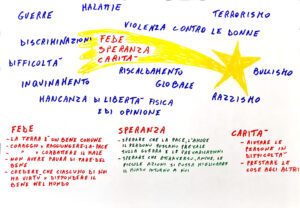 GUERRE
MALATTIE
TERRORISMO
VIOLENZA CONTRO LE DONNE
DISCRIMINAZIONI
FEDE
SPERANZA
CARITA'
DIFFICOLTA'
RISCALDAMENTO
GLOBALE
BULLISMO
INQUINAMENTO
RAZZISMO
MANCANZA DI LIBERTA' FISICA
E DI OPINIONE
FEDE
- LA TERRA È UN BENE COMUNE
- CORAGGIO A RAGGIUNGERE LA PACE
- " A COMBATTERE IL MALE
- NON AVERE PAURA DI FARE DEL
BENE
- CREDERE, CHE CIASCUNO DI NOI
HA VIRTÙ DIFFONDERE IL
BENE NEL MONDO
SPERANZA
- SPERARE CHE LA PACE, L'AMORE
IL PERDONO POSSANO PREVALE
SULLA GUERRA E LE
- SPERARE CHE ATTRAVERSO, ANCHE, LE
PICCOLE AZIONI SI POSSA MIGLIORARE
IL MONDO INTORNO A NOI
CARITÀ
- AIUTARE LE
PERSONE IN
DIFFICOLTÀ
- PRESTARE LE
COSE AGLI ALTRI